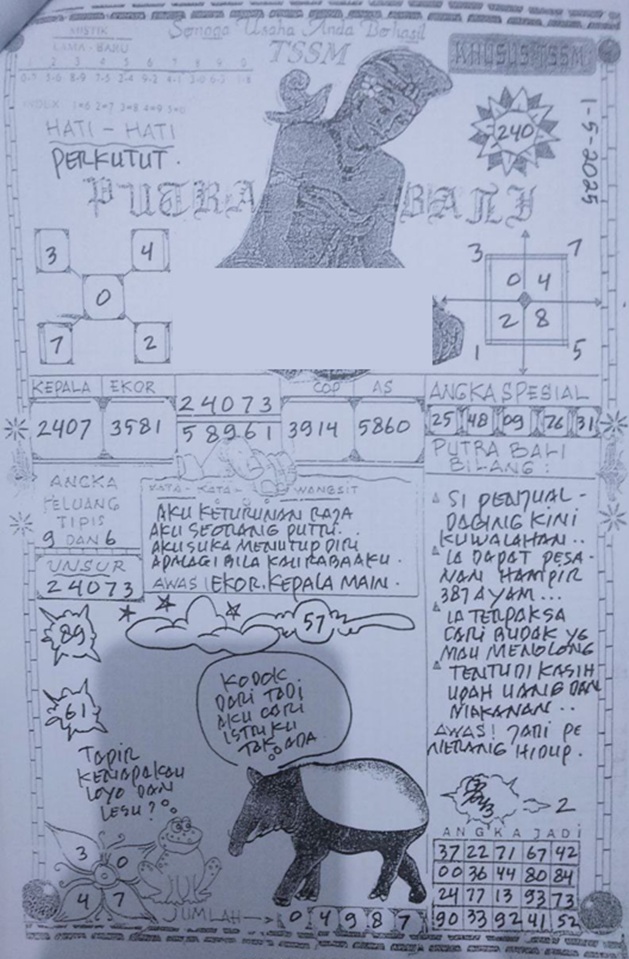 Semoga Usaha Anda Berhasil
MISTIK
LAMA - BARU
1 2 3 4 5 6 7 8 9 0
TSSM
KHUSUS TSSM
INDEX 1=6 2=7 3=8 4=9 5=0
HATI - HATI
PERKUTUT.
240
1-5-2025
PUTRA BALI
3 4
0
7 2
3 7
0 4
2 8
1 5
KEPALA EKOR
2407 3581
24073
58961
COP AS
3914 5860
ANGKA SPESIAL
25 48 09 76 31
PUTRA BALI
BILANG :
SI PENJUAL -
DAGING KINI
KUWALAHAN ..
IA DAPAT PESA -
NAN HAMPIR
387 AYAM ...
IA TERPAKSA
CARI BUDAK YG
MAU MENOLONG
TENTU DI KASIH
UPAH UANG DAN
MAKANAN ..
AWAS ! JADI PE
NERANG HIDUP.
ANGKA
PELUANG
TIPIS
9 DAN 6
UNSUR
24073
KATA - KATA - WANGSIT
AKU KETURUNAN RAJA
AKU SEORANG PUTRI ..
AKU SUKA MENUTUP DIRI
APALAGI BILA KAU RABA AKU.
AWAS ! EKOR. KEPALA MAIN.
57
89
61
KODOK
DARI TADI
AKU CARI
ISTRIKU
TAK ADA.
TAPIR
KENAPA KAU
LOYO DAN
LESU ?
3 0
4 7
JUMLAH → 0 4 9 8 7
2
ANGKA JADI
37 22 71 67 42
00 36 44 80 84
24 77 13 93 73
90 33 92 41 52